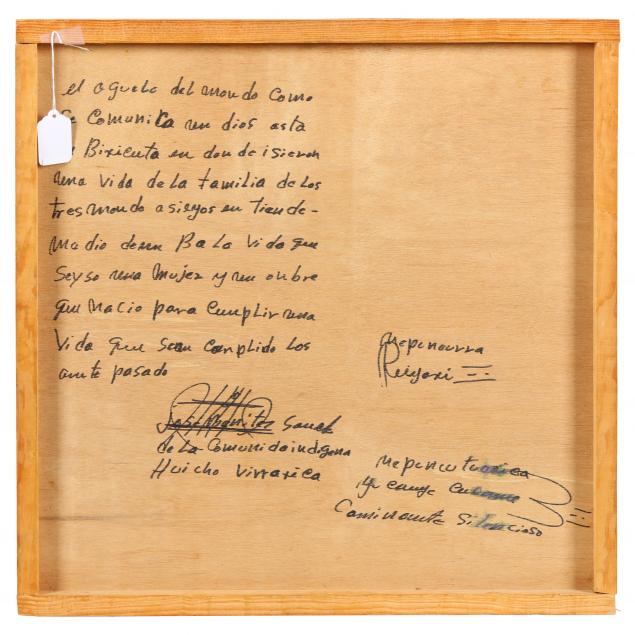 el aguelo del mondo como
se Comunica un dios asta
Biricuta en donde isieron
una Vida de la familia de los
tres mondo asieyos en tiende-
madio deun Ba la Vida que
Seyso una Mujer y un onbre
que Nacio para Cumplir una
Vida que sean complido los
ante pasado
José Benites Sanch
de la Comunida indigena
Huicho virrarica
Caminante Silencioso